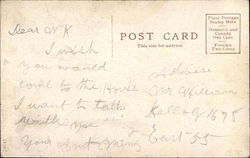 Dear Mr K
I wish
you would
come to the House
I want to talk
with
You
POST CARD
This side for address
Place Postage
Stamp Here
Domestic and
Canada
One Cent
Foreign
Two Cents
Mr William
Kellogg 1698
East 55